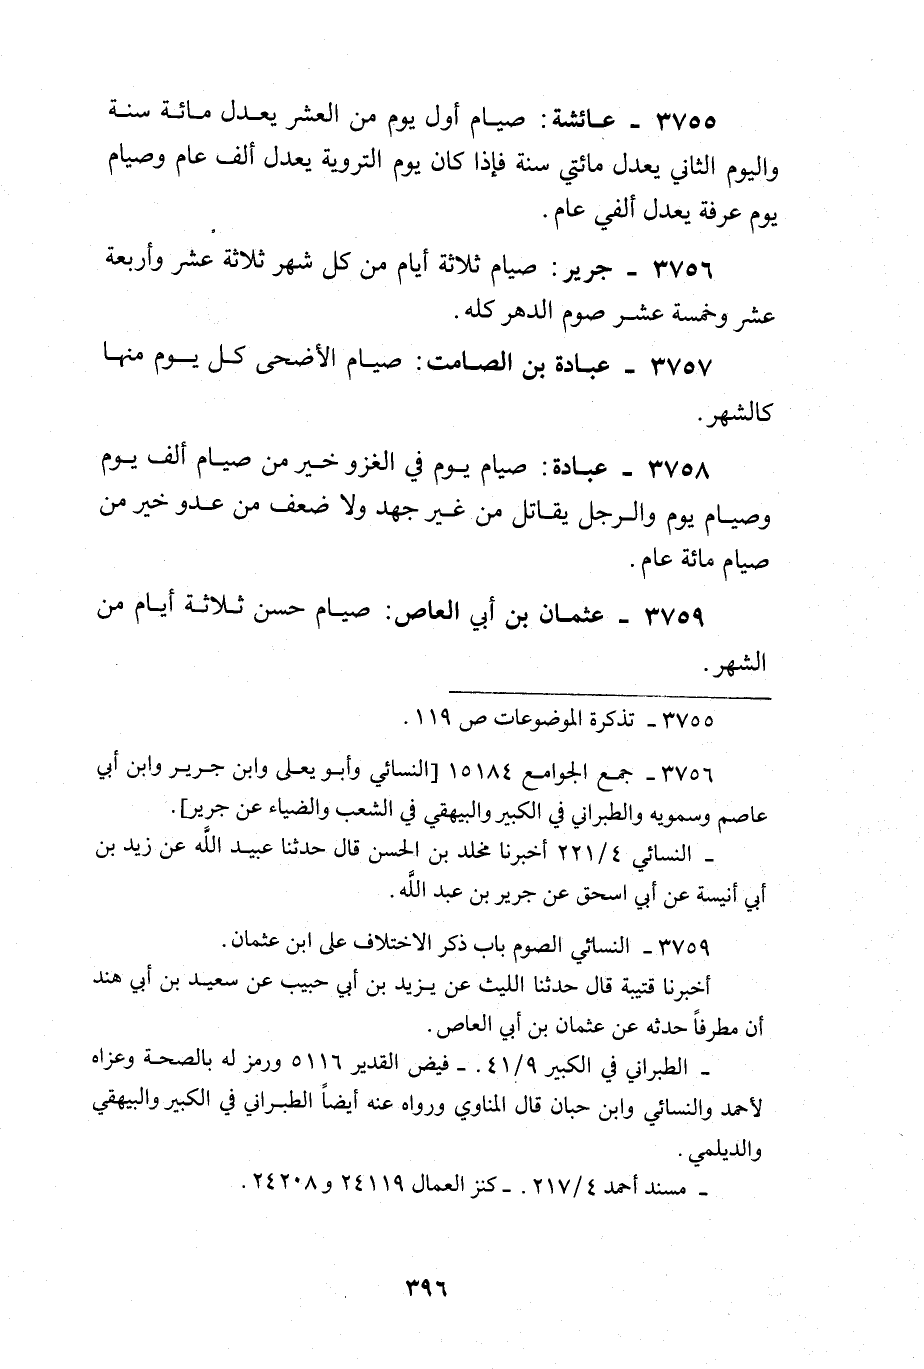 ٣٧٥٥ ـ عـائشة: صيـام أول يوم من العشر يعـدل مـائـة سنـة
واليوم الثاني يعدل مائتي سنة فإذا كان يوم التروية يعدل ألف عام وصيام
يوم عرفة يعدل ألفي عام.
٣٧٥٦ ـ جرير: صيام ثلاثة أيام من كل شهر ثلاثة عشر وأربعة
عشر وخمسة عشـر صوم الدهر كله.
٣٧٥٧ ـ عبـادة بن الصـامت: صيـام الأضحى كـل يـوم منهـا
كالشهر.
٣٧٥٨ ـ عبـادة: صيام يـوم في الغزو خـير من صيـام ألف يـوم
وصيـام يوم والـرجل يقـاتل من غـير جهد ولا ضعف من عـدو خير من
صيام مائة عام.
٣٧٥٩ ـ عثمـان بن أبي العاص: صيـام حسن ثـلاثـة أيـام من
الشهر.
٣٧٥٥ ـ تذكرة الموضوعات ص ١١٩.
٣٧٥٦ ـ جمـع الجوامـع ١٥١٨٤ [النسائي وأبـو يعـلى وابن جـريـر وابن أبي
عاصم وسمويه والطبراني في الكبير والبيهقي في الشعب والضياء عن جرير].
ـ النسائي ٢٢١/٤ أخبرنا مخلد بن الحسن قال حدثنا عبيـد اللَّه عن زيد بن
أبي أنيسة عن أبي اسحق عن جرير بن عبد اللَّه.
٣٧٥٩ ـ النسائي الصوم باب ذكر الاختلاف على ابن عثمان.
أخبرنا قتيبة قال حدثنا الليث عن يـزيد بن أبي حبيب عن سعيـد بن أبي هند
أن مطرفاً حدثه عن عثمان بن أبي العاص.
ـ الطبراني في الكبير ٤١/٩. ـ فيض القدير ٥١١٦ ورمز له بالصحـة وعزاه
لأحمد والنسائي وابن حبان قال المناوي ورواه عنه أيضاً الطبـراني في الكبير والبيهقي
والديلمي.
ـ مسند أحمد ٢١٧/٤. ـ كنز العمال ٢٤١١٩ و٢٤٢٠٨.
٣٩٦